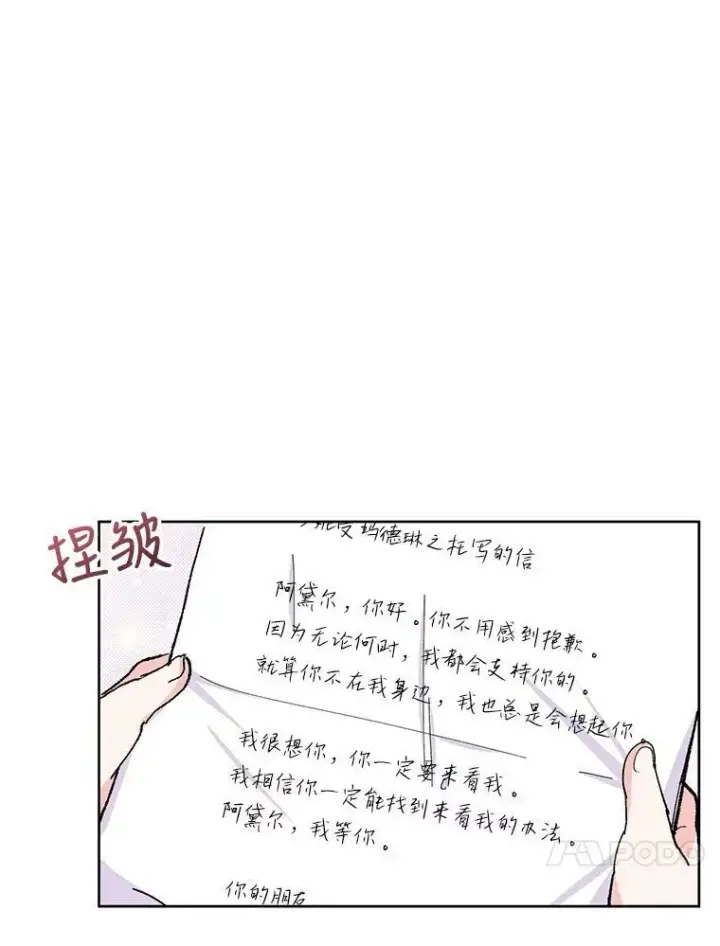 捏皱
受玛德琳之托写的信
阿黛尔，你好。你不用感到抱歉。
因为无论何时，我都会支持你的。
就算你不在我身边，我也总是会想起你，
我很想你，你一定要来看我。
我相信你一定能找到来看我的办法。
阿黛尔，我等你。
你的朋友
PODO